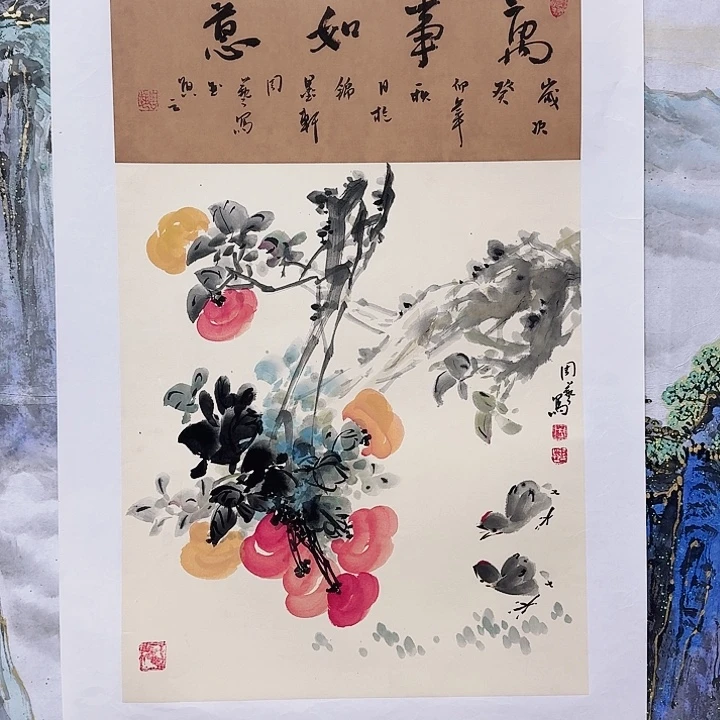 萬事如意
歲次癸卯年秋月於錦墨軒
周藝寫
周藝寫